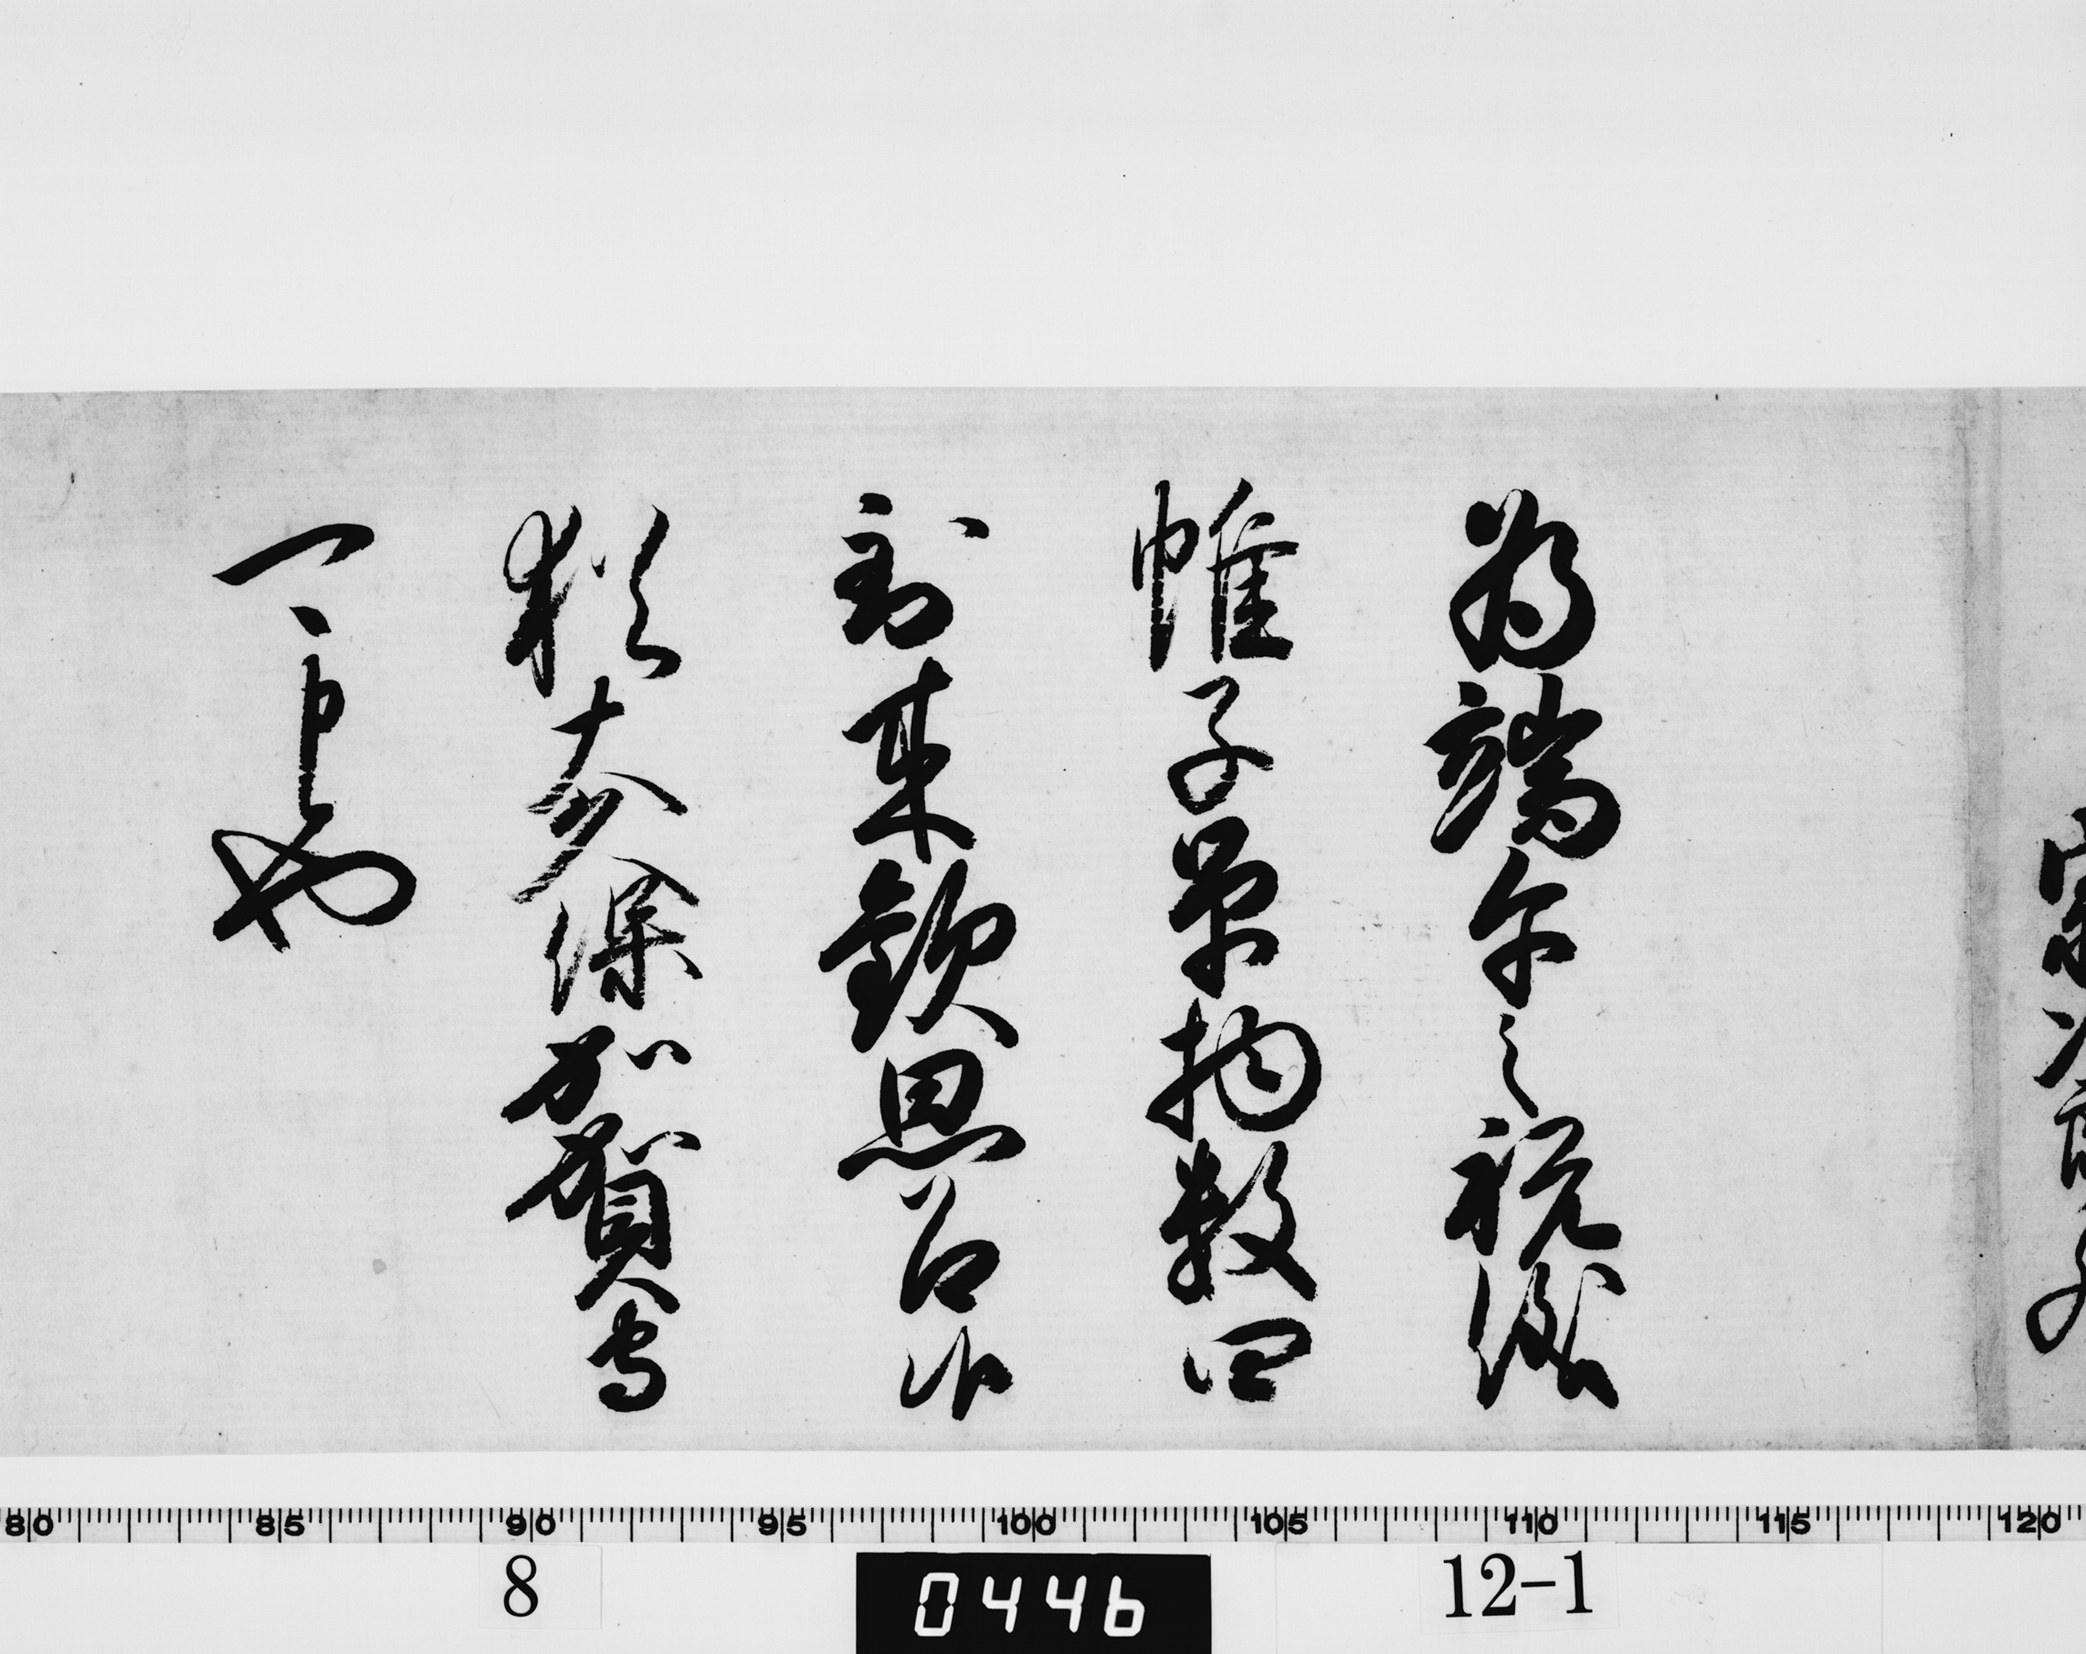 宗次郎
為端午之祝儀
帷子單物数四
到来歓思召候
猶大久保加賀守
可申也
80 85 90 95 100 105 110 115 120
8
0446
12-1